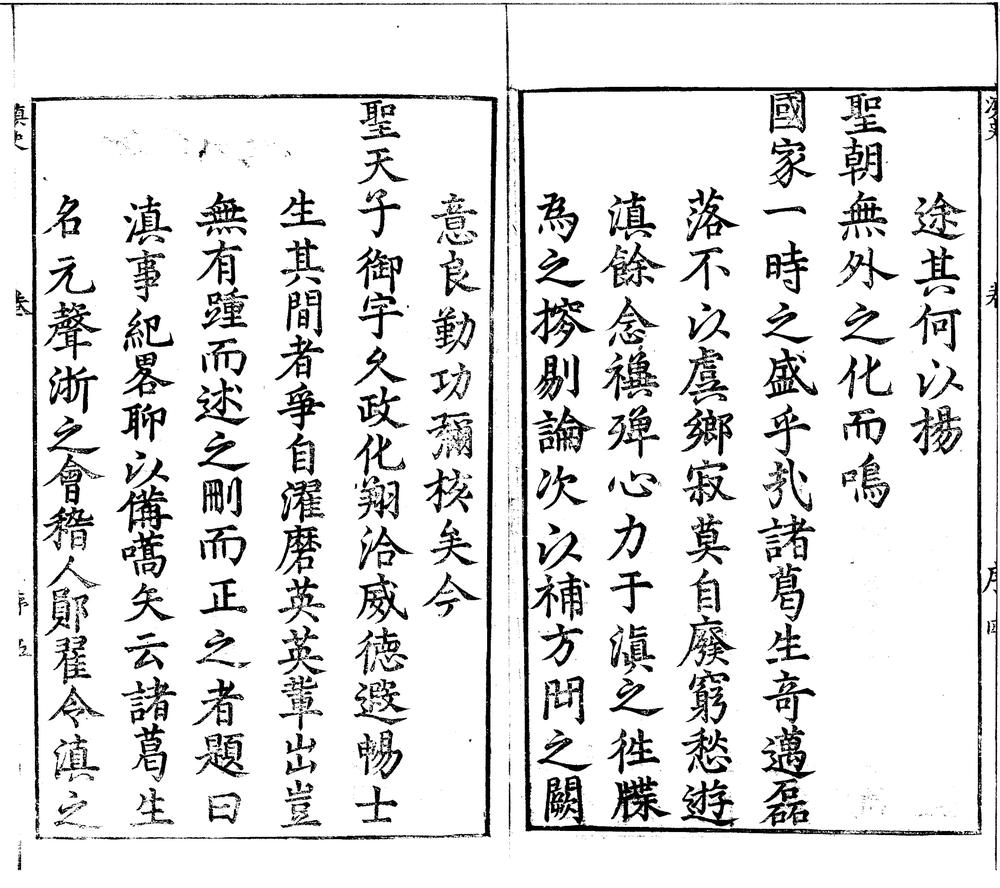 途其何以楊
聖朝無外之化而鳴
國家一時之盛乎扎諸葛生奇邁磊
落不以虞鄉寂莫自廢窮愁遊
滇餘念禩殫心力于滇之徃牒
為之摉剔論次以補方門之闕
意良勤功彌核矣今
聖天子御宇久政化翔洽威徳遐暢士
生其間者爭自濯磨英英輩出豈
無有踵而述之刪而正之者題曰
滇事紀畧聊以備嚆矢云諸葛生
名元聲浙之會稽人鄖翟令滇之
滇史
卷
序